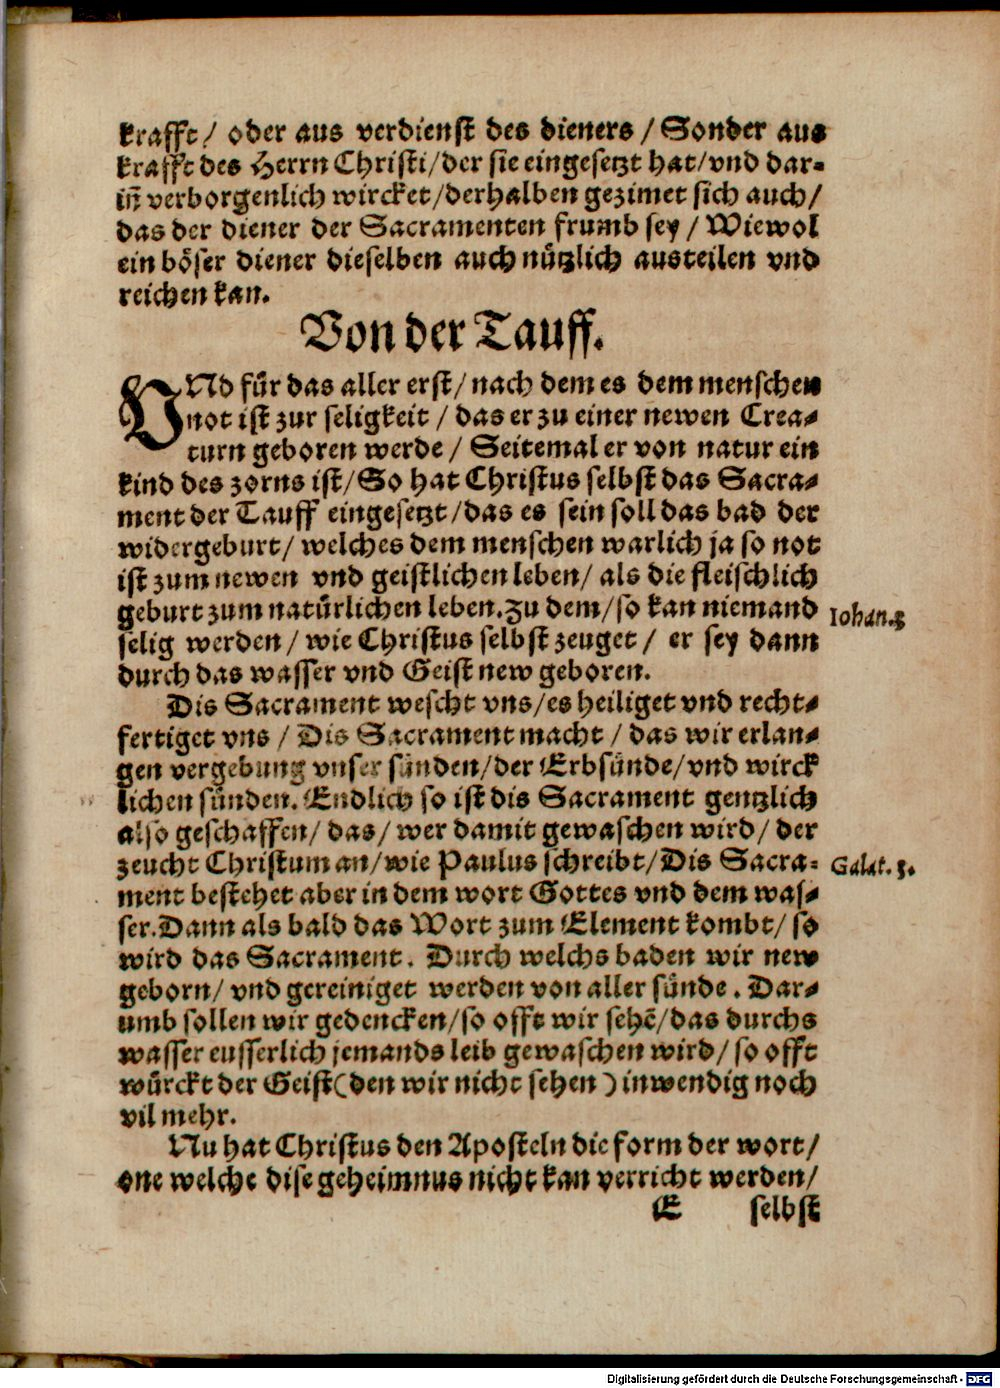 krafft / oder aus verdienst des dieners / Sonder aus
krafft des Herrn Christi / der sie eingesetzt hat / vnd dar-
iñ verborgenlich wircket / derhalben gezimet sich auch /
das der diener der Sacramenten frumb sey / Wiewol
ein böser diener dieselben auch nützlich austeilen vnd
reichen kan.
Von der Tauff.
VNd für das aller erst / nach dem es dem menschen
not ist zur seligkeit / das er zu einer newen Crea-
turn geboren werde / Seitemal er von natur ein
kind des zorns ist / So hat Christus selbst das Sacra-
ment der Tauff eingesetzt / das es sein soll das bad der
widergeburt / welches dem menschen warlich ja so not
ist zum newen vnd geistlichen leben / als die fleischlich
geburt zum natürlichen leben. Zu dem / so kan niemand
Iohan. 3
selig werden / wie Christus selbst zeuget / er sey dann
durch das wasser vnd Geist new geboren.
Dis Sacrament wescht vns / es heiliget vnd recht-
fertiget vns / Dis Sacrament macht / das wir erlan-
gen vergebung vnser sünden / der Erbsünde / vnd wirck
lichen sünden. Endlich so ist dis Sacrament gentzlich
also geschaffen / das / wer damit gewaschen wird / der
zeucht Christum an / wie Paulus schreibt / Dis Sacra-
Galat. 3.
ment bestehet aber in dem wort Gottes vnd dem was-
ser. Dann als bald das Wort zum Element kombt / so
wird das Sacrament. Durch welchs baden wir new
geborn / vnd gereiniget werden von aller sünde. Dar-
umb sollen wir gedencken / so offt wir sehē / das durchs
wasser eusserlich jemands leib gewaschen wird / so offt
würckt der Geist (den wir nicht sehen) inwendig noch
vil mehr.
Nu hat Christus den Aposteln die form der wort /
one welche dise geheimnus nicht kan verricht werden /
E selbst
Digitalisierung gefördert durch die Deutsche Forschungsgemeinschaft - DFG